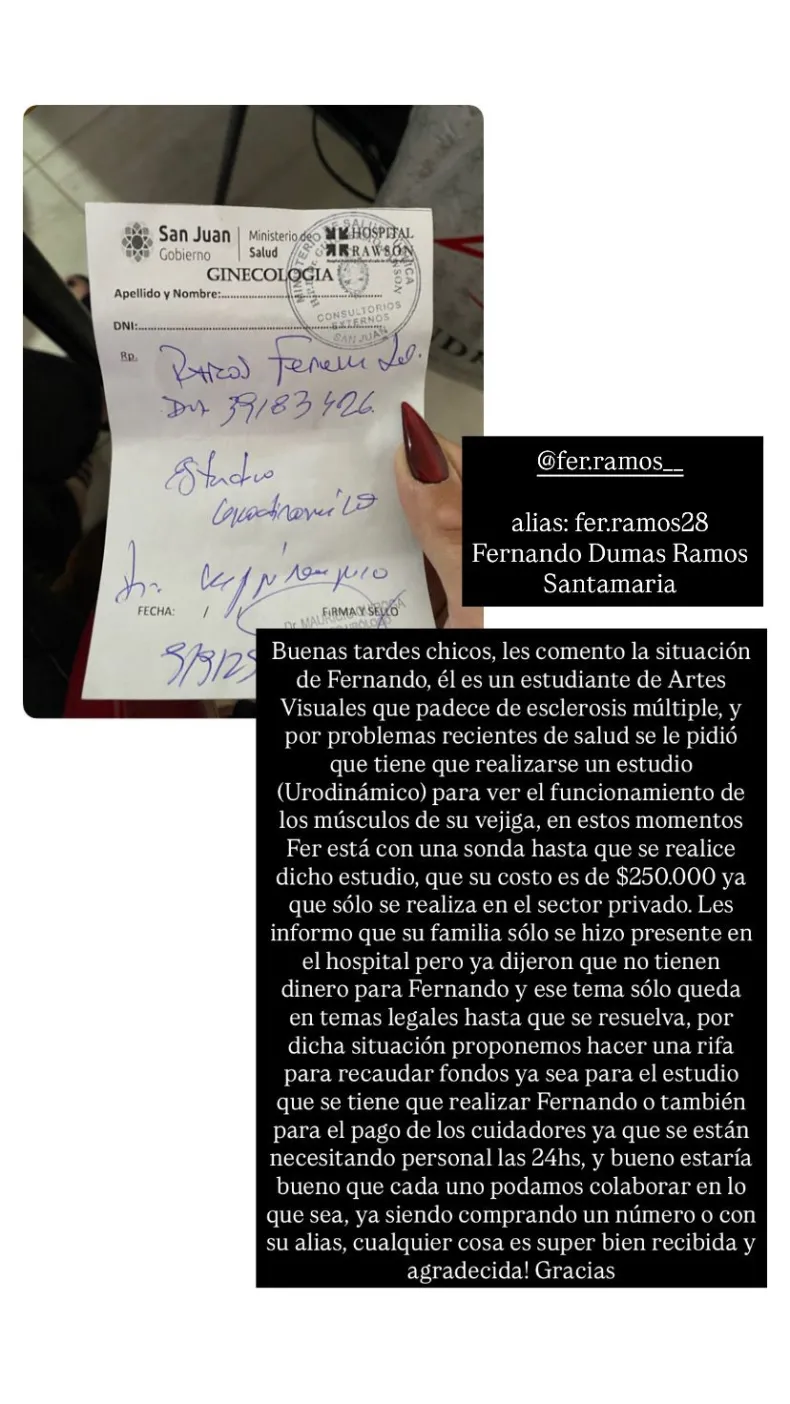 San Juan
Gobierno
Ministerio de
Salud
HOSPITAL
RAWSON
GINECOLOGIA
CONSULTORIOS
EXTERNOS
SAN JUAN
Apellido y Nombre:
DNI:
Rp.
DNI 39183426
Estudio
FECHA: / FIRMA Y SELLO
@fer.ramos__
alias: fer.ramos28
Fernando Dumas Ramos
Santamaria
Buenas tardes chicos, les comento la situación
de Fernando, él es un estudiante de Artes
Visuales que padece de esclerosis múltiple, y
por problemas recientes de salud se le pidió
que tiene que realizarse un estudio
(Urodinámico) para ver el funcionamiento de
los músculos de su vejiga, en estos momentos
Fer está con una sonda hasta que se realice
dicho estudio, que su costo es de $250.000 ya
que sólo se realiza en el sector privado. Les
informo que su familia sólo se hizo presente en
el hospital pero ya dijeron que no tienen
dinero para Fernando y ese tema sólo queda
en temas legales hasta que se resuelva, por
dicha situación proponemos hacer una rifa
para recaudar fondos ya sea para el estudio
que se tiene que realizar Fernando o también
para el pago de los cuidadores ya que se están
necesitando personal las 24hs, y bueno estaría
bueno que cada uno podamos colaborar en lo
que sea, ya siendo comprando un número o con
su alias, cualquier cosa es super bien recibida y
agradecida! Gracias